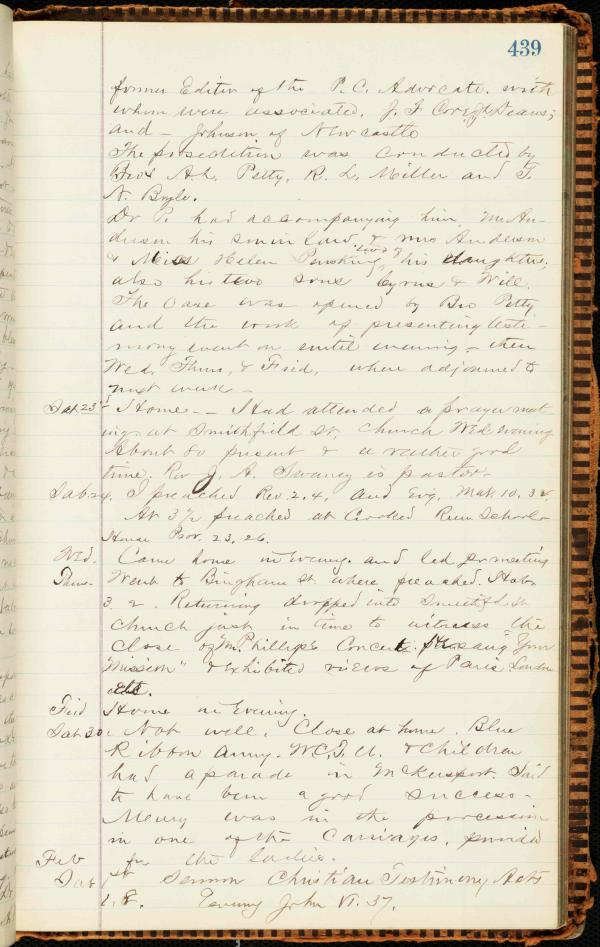 439
former Editor of the P. C. Advocate. with
whom were associated, J. F. Cor, Jr. Deans;
and – Johnson of Newcastle
The prosecution was conducted by
Bros A. L. Petty, R. L. Miller and T.
N. Boyle.
Dr P. had accompanying him, Mr An-
derson his son in law, & mrs Anderson
& Miss Helen Pershing, two of his daughters;
also his two sons Cyrus & Will.
The Case was opened by Bro Petty
and the work of presenting testi-
mony went on until evening – then
Wed, Thurs, & Frid, when adjourned to
next week –
Sat. 23rd Home – – I had attended a prayer meet-
ing at Smithfield St. Church Wed evening
About 80 present & a rather good
time. Rev J. A. Swaney is pastor.
Sab. 24. I preached Rev. 2. 4, and Evg. Mark 10. 32.
At 3 1/2 preached at Crooked Run School-
House Prov. 23, 26.
Wed. Came home in Evening. and led pr meeting
Thurs. Went to Bingham St. where preached. Hab.
3. 2. Returning dropped into Smithfd St
Church just in time to witness the
close of Mr. Phillip's Concert. He sang "Your
Mission" & exhibited views of Paris London
etc.
Frid Home in Evening.
Sat 30. Not well. Close at home. Blue
Ribbon Army. W.C.T.U. & Children
had a parade in McKeesport. Said
to have been a good success –
Mary was in the procession
in one of the Carriages, provided
for the ladies.
Feb
Sab 1st Sermon Christian Testimony Acts
1, 8. Evening John VI. 37.